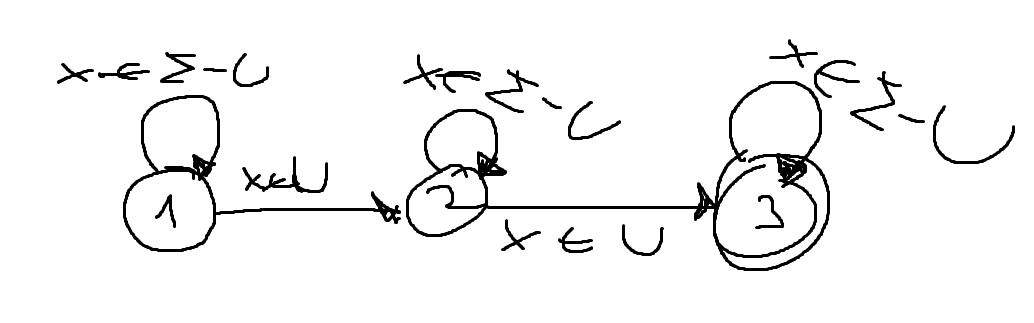 x ∈ Σ - U
x ∈ Σ - U
x ∈ Σ - U
1
x ∈ U
2
x ∈ U
3